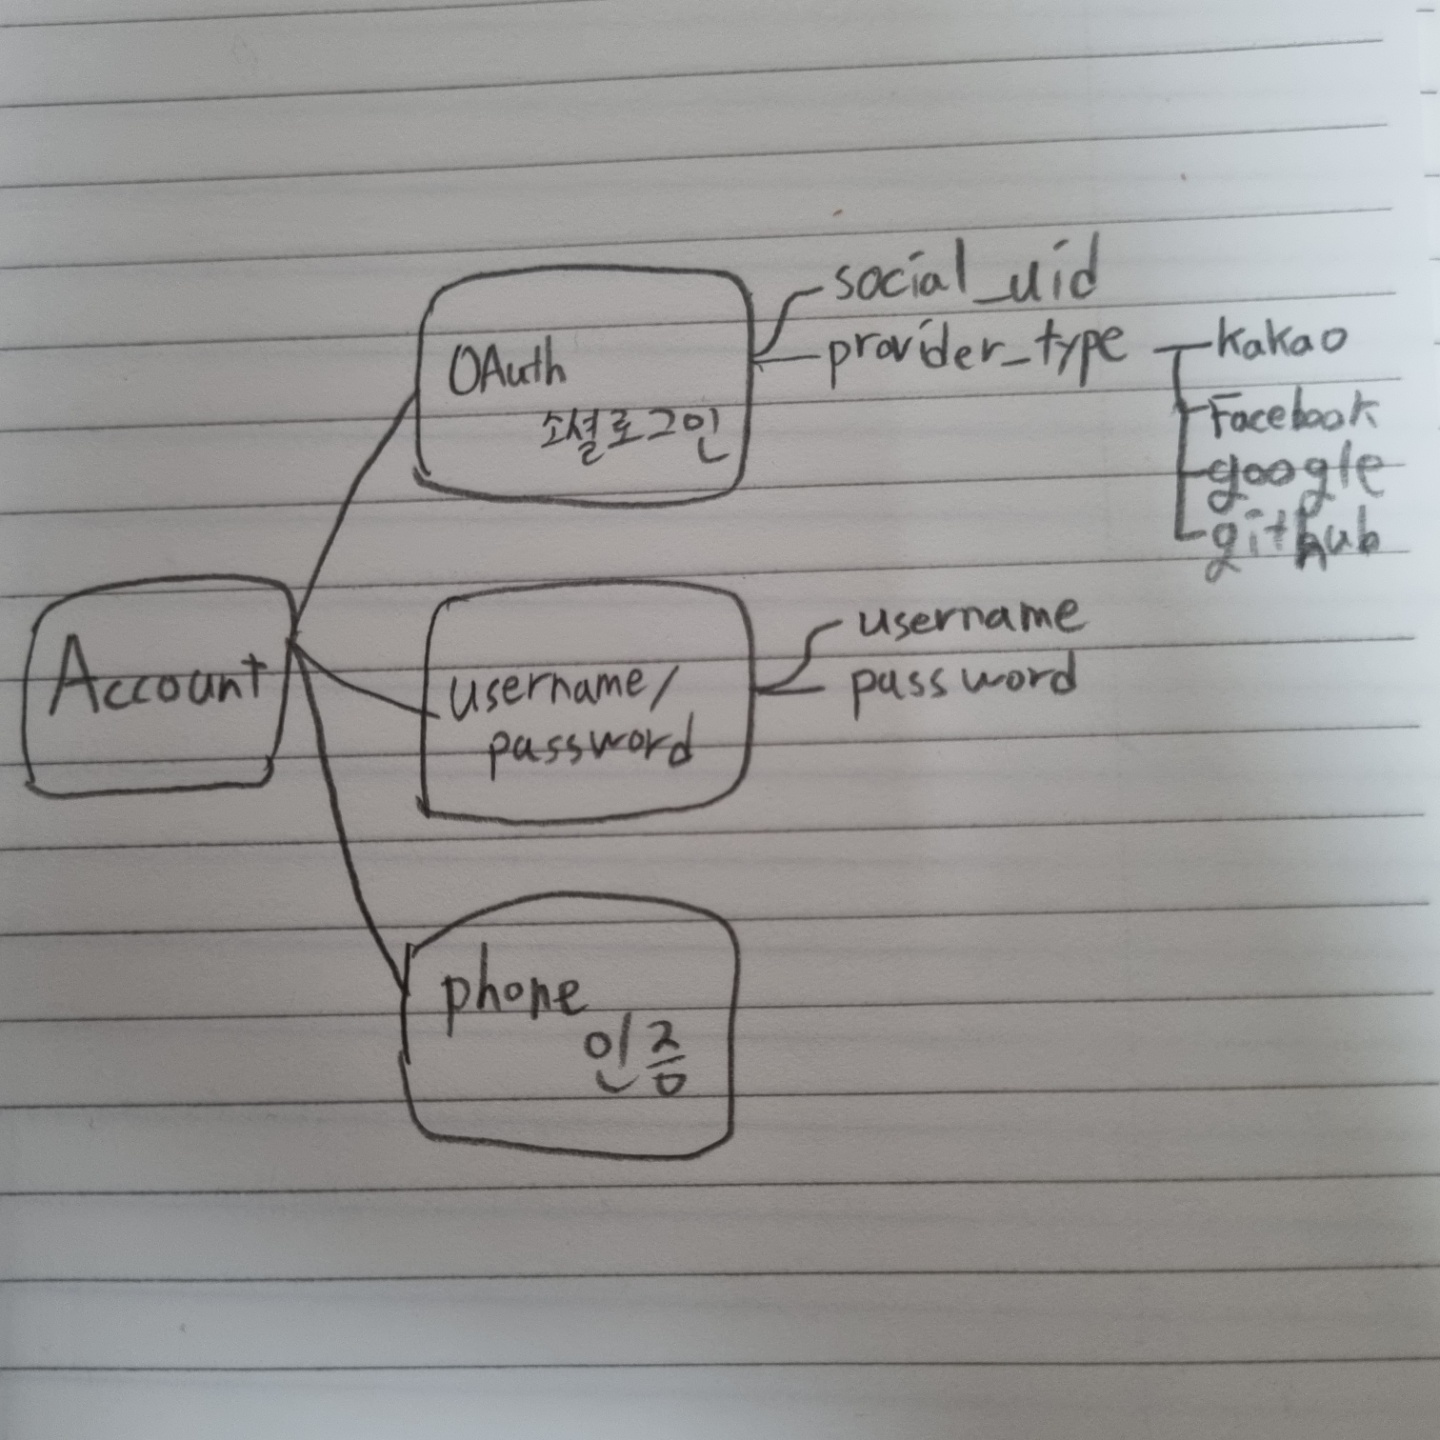 Account
OAuth
소셜로그인
social_uid
provider_type
kakao
Facebook
google
github
username/
password
username
password
phone
인증